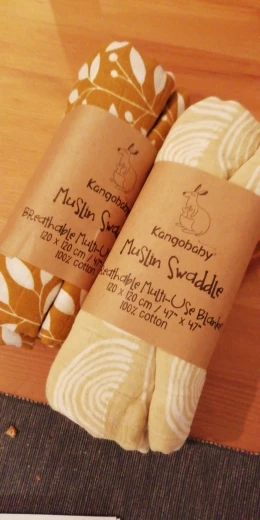 Kangobaby
Muslin
Breathable Multi-
120 x 120 cm / 47"
100% cotton
Kangobaby
Muslin Swaddle
Breathable Multi-Use Blanket
120 x 120 cm / 47" x 47"
100% cotton